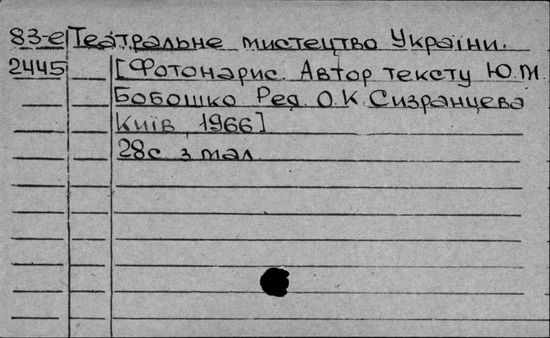 83-е Театральне мистецтво України.
2445 [Фотонарис. Автор тексту Ю.М.
Бобошко Ред. О.К. Сизранцева
Київ, 1966]
28с. з мал.